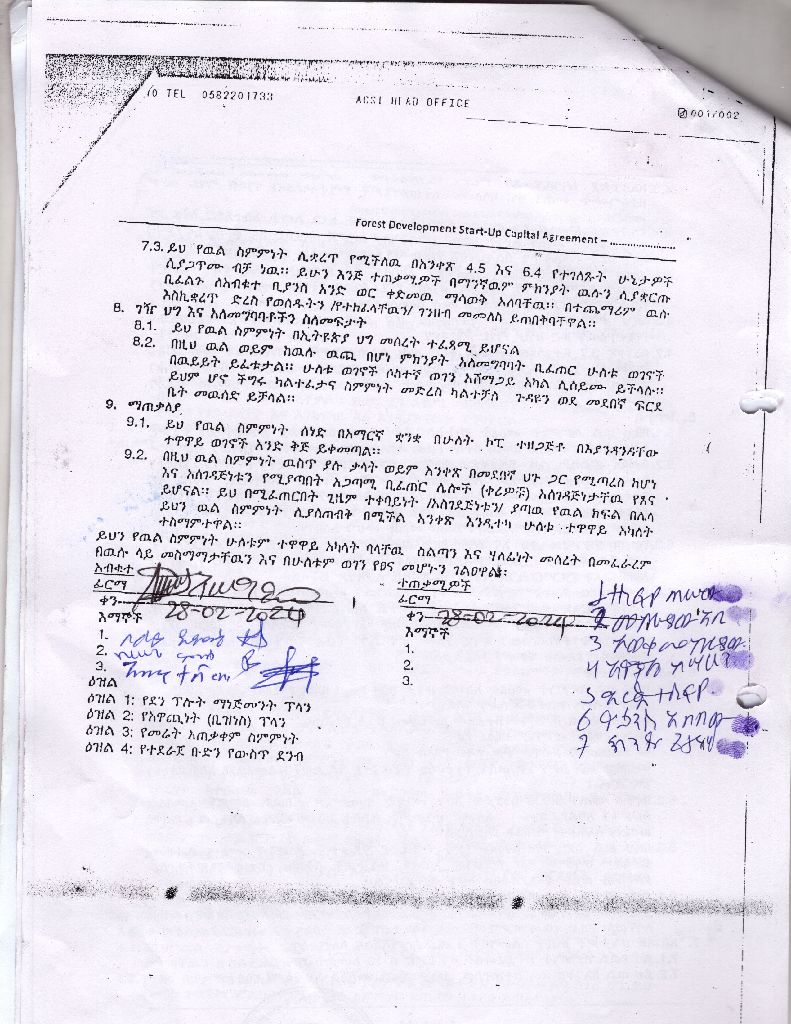 TO TEL 0582201733 ACSI HEAD OFFICE 001/002
Forest Development Start-Up Capital Agreement – ....................
7.3. ይህ የዉል ስምምነት ሊቋረጥ የሚችለዉ በአንቀጽ 4.5 እና 6.4 የተገለጹት ሁኔታዎች
ሲያጋጥሙ ብቻ ነዉ። ይሁን እንጅ ተጠቃሚዎች በማንኛዉም ምክንያት ዉሉን ሲያቋርጡ
ቢፈልጉ ለአብቁተ ቢያንስ አንድ ወር ቀድመዉ ማሳወቅ አለባቸዉ። በተጨማሪም ዉሉ
እስኪቋረጥ ድረስ የወሰዱትን /የተከፈላቸዉን/ ገንዘብ መመለስ ይጠበቅባቸዋል።
8. ገዥ ህግ እና አለመግባባቶችን ስለመፍታት
8.1. ይህ የዉል ስምምነት በኢትዩጵያ ህግ መሰረት ተፈጻሚ ይሆናል
8.2. በዚህ ዉል ወይም ከዉሉ ዉጪ በሆነ ምክንያት አለመግባባት ቢፈጠር ሁለቱ ወገኖች
በዉይይት ይፈቱታል። ሁለቱ ወገኖች ሶስተኛ ወገን አሸማጋይ አካል ሊሰይሙ ይችላሉ።
ይህም ሆኖ ችግሩ ካልተፈታና ስምምነት መድረስ ካልተቻለ ጉዳዩን ወደ መደበኛ ፍርድ
ቤት መዉሰድ ይቻላል።
9. ማጠቃለያ
9.1. ይህ የዉል ስምምነት ሰነድ በአማርኛ ቋንቋ በሁለት ኮፒ ተዘጋጅቶ በእያንዳንዳቸው
ተዋዋይ ወገኖች አንድ ቅጅ ይቀመጣል።
9.2. በዚህ ዉል ስምምነት ዉስጥ ያሉ ቃላት ወይም አንቀጽ በመደበኛ ህጉ ጋር የሚጣረስ ከሆነ
እና አስገዳጅነቱን የሚያጣበት አጋጣሚ ቢፈጠር ሌሎች (ቀሪዎቹ) አስገዳጅነታቸዉ የጸና
ይሆናል። ይህ በሚፈጠርበት ጊዜም ተቀባይነት /አስገደጅነቱን/ ያጣዉ የዉል ክፍል በሌላ
ይህን ዉል ስምምነት ሊያስጠብቅ በሚችል አንቀጽ እንዲተካ ሁለቱ ተዋዋይ አካላት
ተስማምተዋል።
ይህን የዉል ስምምነት ሁለቱም ተዋዋይ አካላት ባላቸዉ ስልጣን እና ሃላፊነት መሰረት በመፈራረም
በዉሉ ላይ መስማማታቸዉን እና በሁለቱም ወገን የፀና መሆኑን ገልፀዋል፡
አብቁተ ተጠቃሚዎች
ፊርማ ፊርማ
ቀን 28-02-2024 ቀን 28-02-2024
እማኞች እማኞች
1. 1.
2. 2.
3. 3.
1
2
3
4
5
6
7
ዕዝል
ዕዝል 1: የደን ፕሎት ማነጅመንት ፕላን
ዕዝል 2: የአዋጪነት (ቢዝነስ) ፕላን
ዕዝል 3: የመሬት አጠቃቀም ስምምነት
ዕዝል 4: የተደራጀ ቡድን የውስጥ ደንብ